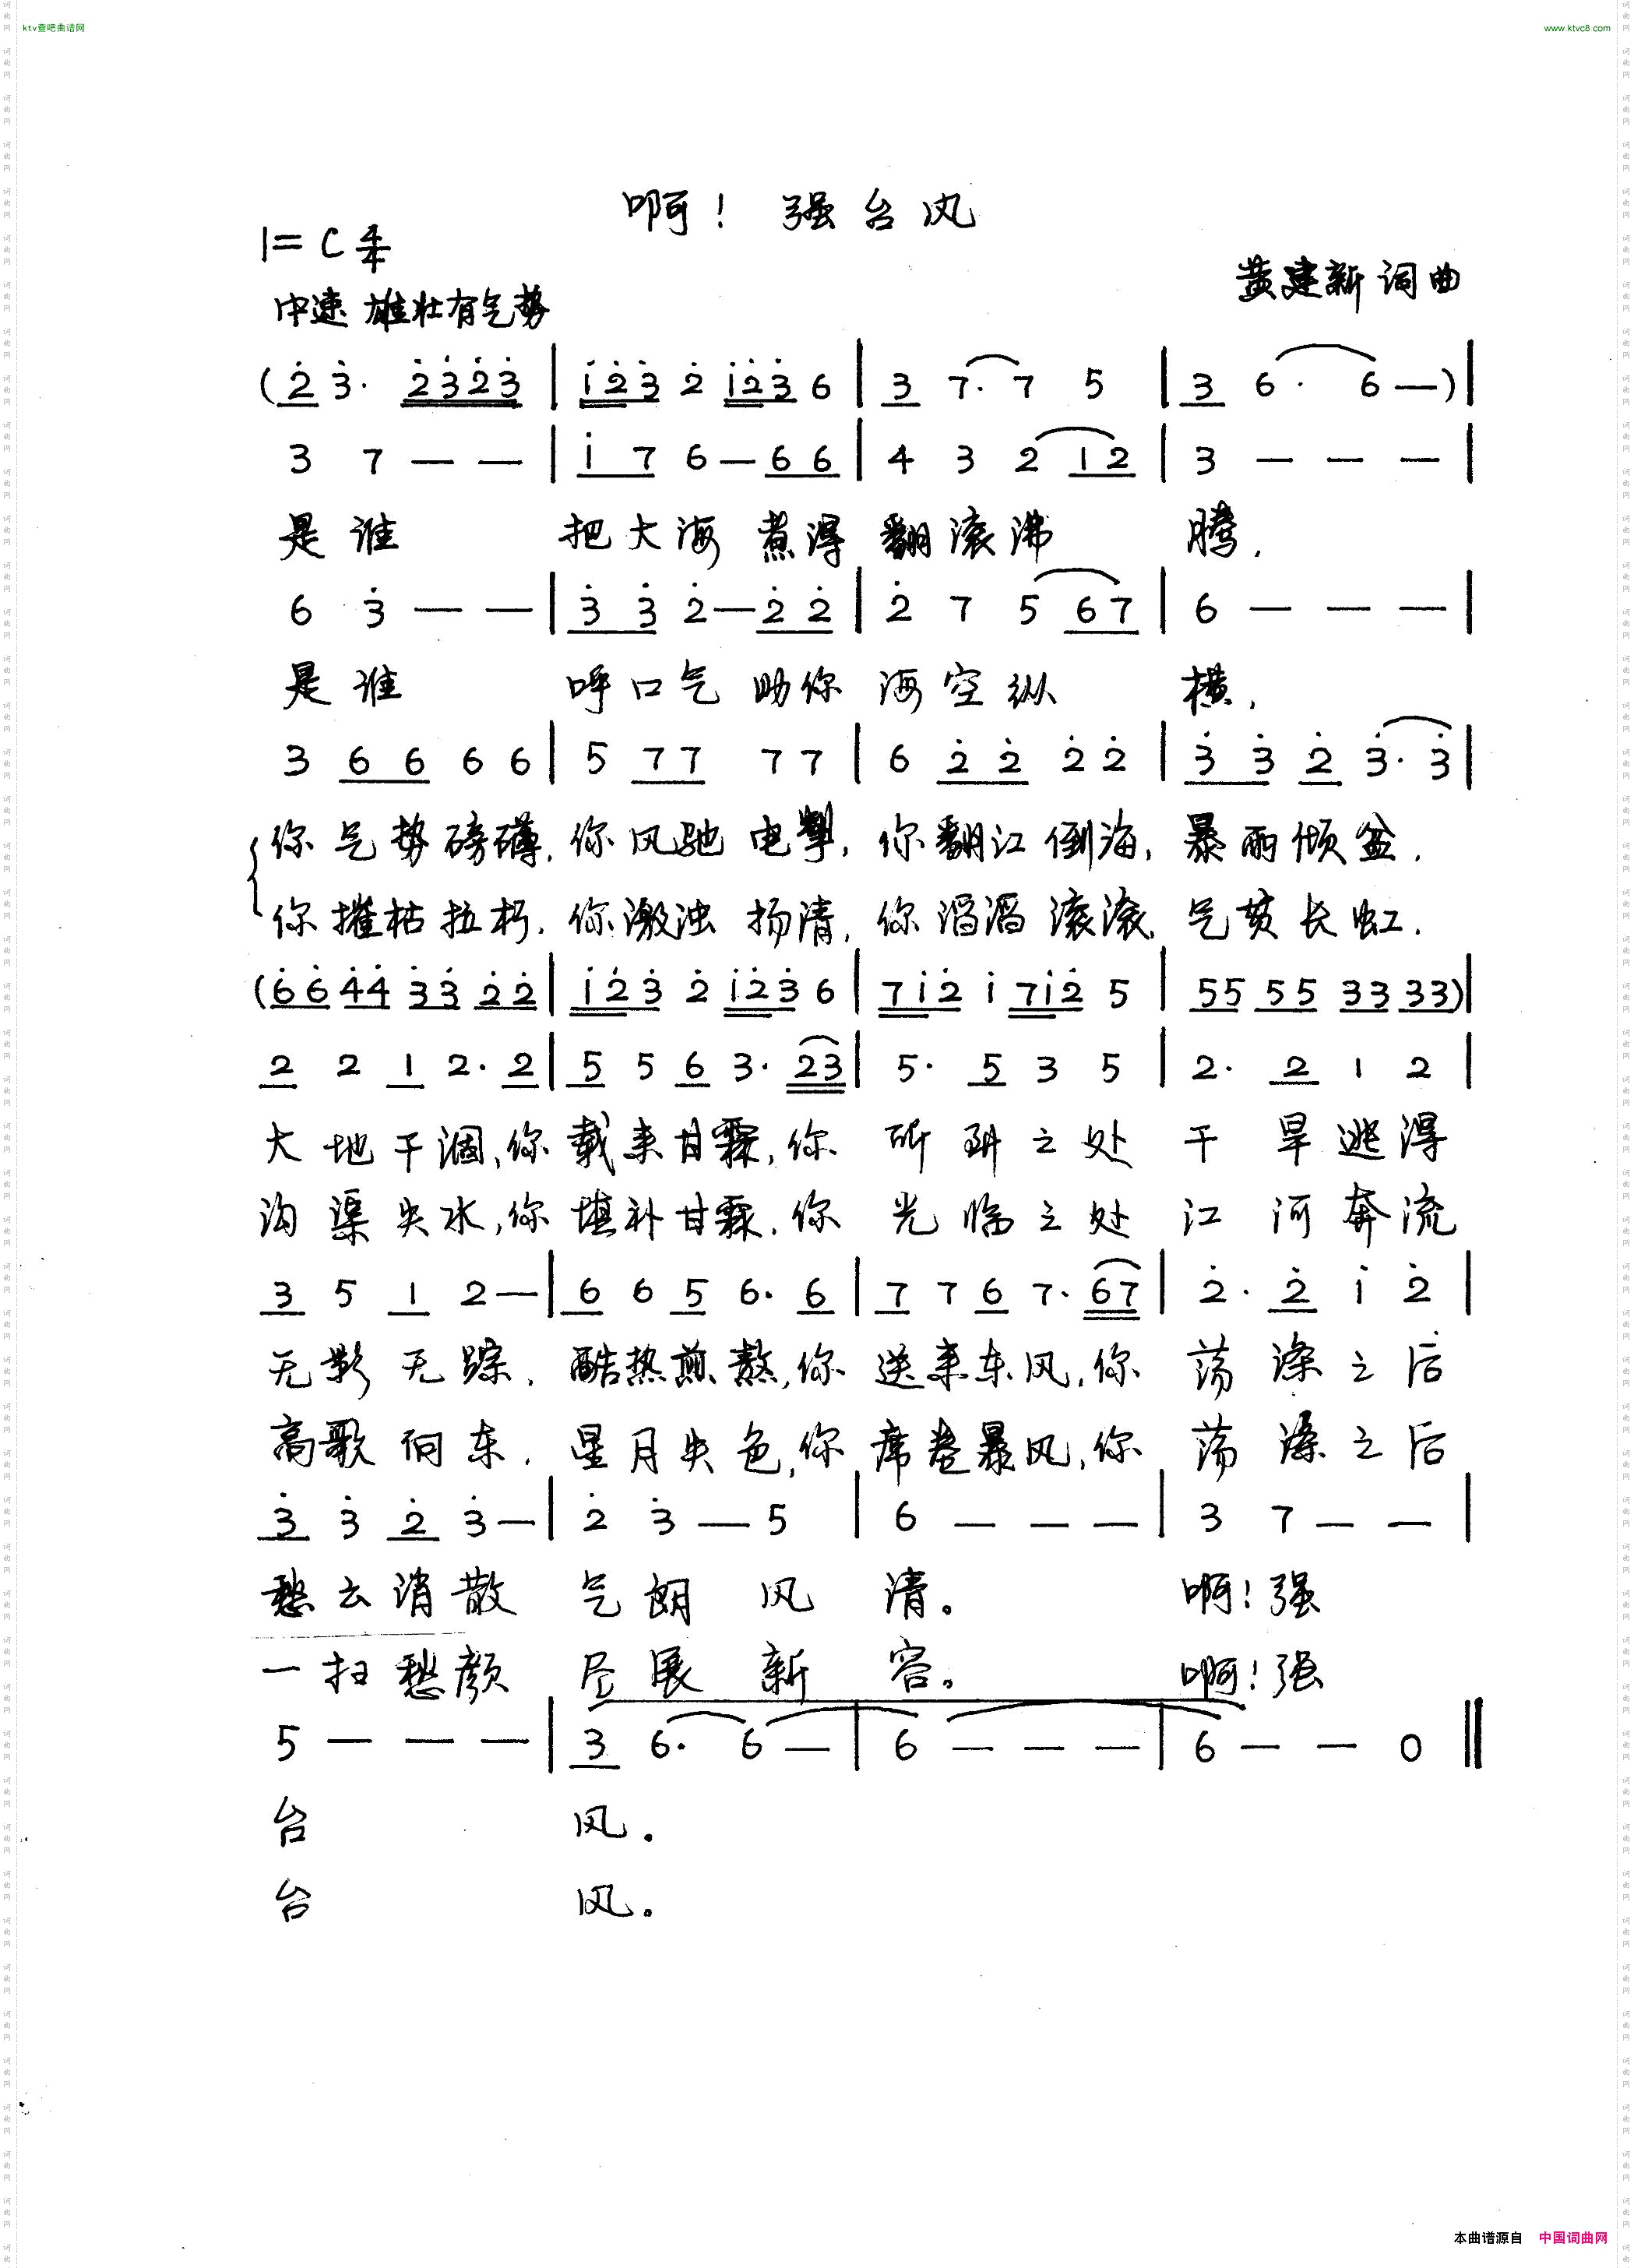 ktv查吧曲谱网
www.ktvc8.com
啊！强台风
1=C 4/4
黄建新 词曲
中速 雄壮有气势
(2̇ 3̇· 2̇3̇2̇3̇ | i2̇3̇ 2̇ i2̇3̇ 6 | 3 7·7 5 | 3 6· 6 —)|
3 7 — — | i 7 6 — 6 6 | 4 3 2 1 2 | 3 — — — |
是谁 把大海煮得 翻滚沸 腾,
6 3̇ — — | 3̇ 3̇ 2̇ — 2̇ 2̇ | 2̇ 7 5 6 7 | 6 — — — |
是谁 呼口气助你 海空纵 横,
3 6 6 6 6 | 5 7 7 7 7 | 6 2̇ 2̇ 2̇ 2̇ | 3̇ 3̇ 2̇ 3̇· 3̇ |
你气势磅礴, 你风驰电掣, 你翻江倒海, 暴雨倾盆.
你摧枯拉朽, 你激浊扬清, 你滔滔滚滚, 气贯长虹.
(6̇6̇ 4̇4̇ 3̇3̇ 2̇2̇ | i2̇3̇ 2̇ i2̇3̇ 6 | 7i2̇ i 7i2̇ 5 | 55 55 33 33)|
2 2 1 2· 2 | 5 5 6 3· 23 | 5· 5 3 5 | 2· 2 1 2 |
大地干涸,你 载来甘霖,你 所到之处 干旱逃得
沟渠失水,你 填补甘霖,你 光临之处 江河奔流
3 5 1 2 — | 6 6 5 6· 6 | 7 7 6 7· 67 | 2̇· 2̇ i 2̇ |
无影无踪. 酷热煎熬,你 送来东风,你 荡涤之后
高歌向东. 星月失色,你 席卷暴风,你 荡涤之后
3̇ 3̇ 2̇ 3̇ — | 2̇ 3̇ — 5 | 6 — — — | 3 7 — — |
愁云消散 气朗风 清。 啊！强
一扫愁颜 尽展新 容。 啊！强
5 — — — | 3 6· 6 — | 6 — — — | 6 — — 0 ‖
台 风。
台 风。
本曲谱源自 中国词曲网